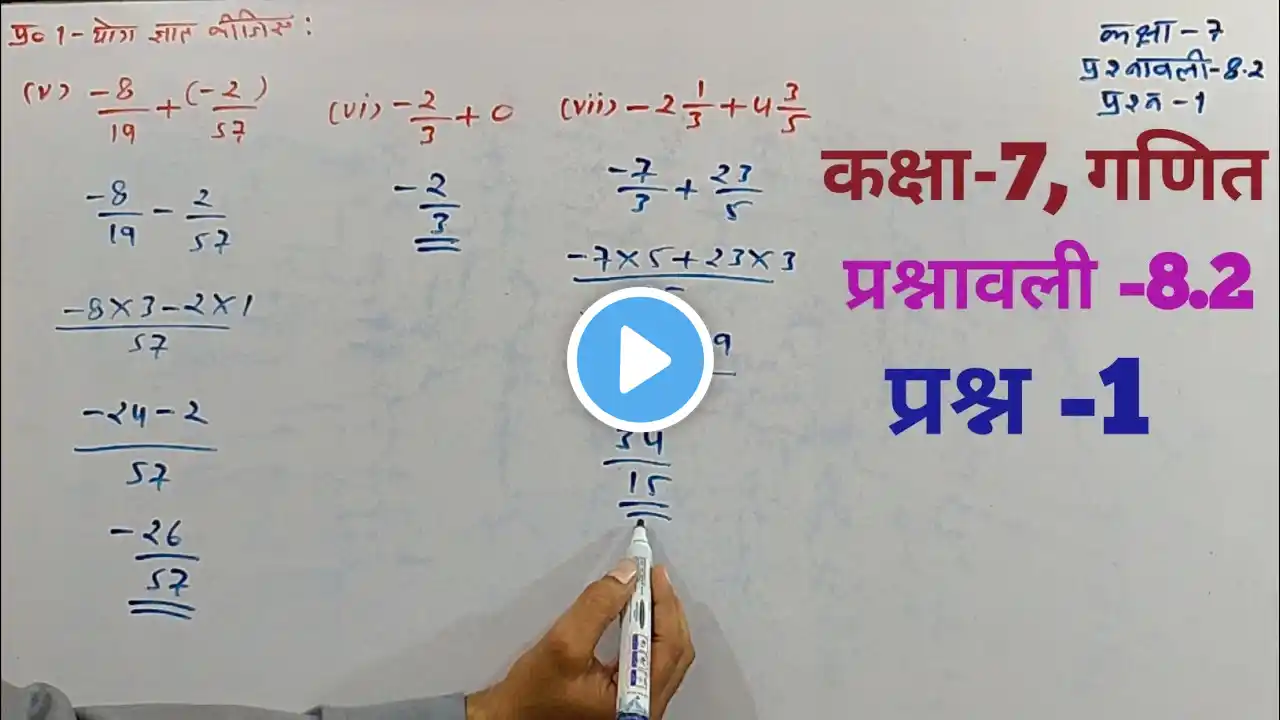 प्र० 1 - योग ज्ञात कीजिए :
कक्षा - 7
प्रश्नावली - 8.2
प्रश्न - 1
(v) -8/19 + (-2)/57
-8/19 - 2/57
-8×3-2×1/57
-24-2/57
-26/57
(vi) -2/3 + 0
-2/3
(vii) -2 1/3 + 4 3/5
-7/3 + 23/5
-7×5+23×3
9
34/15
कक्षा-7, गणित
प्रश्नावली -8.2
प्रश्न -1